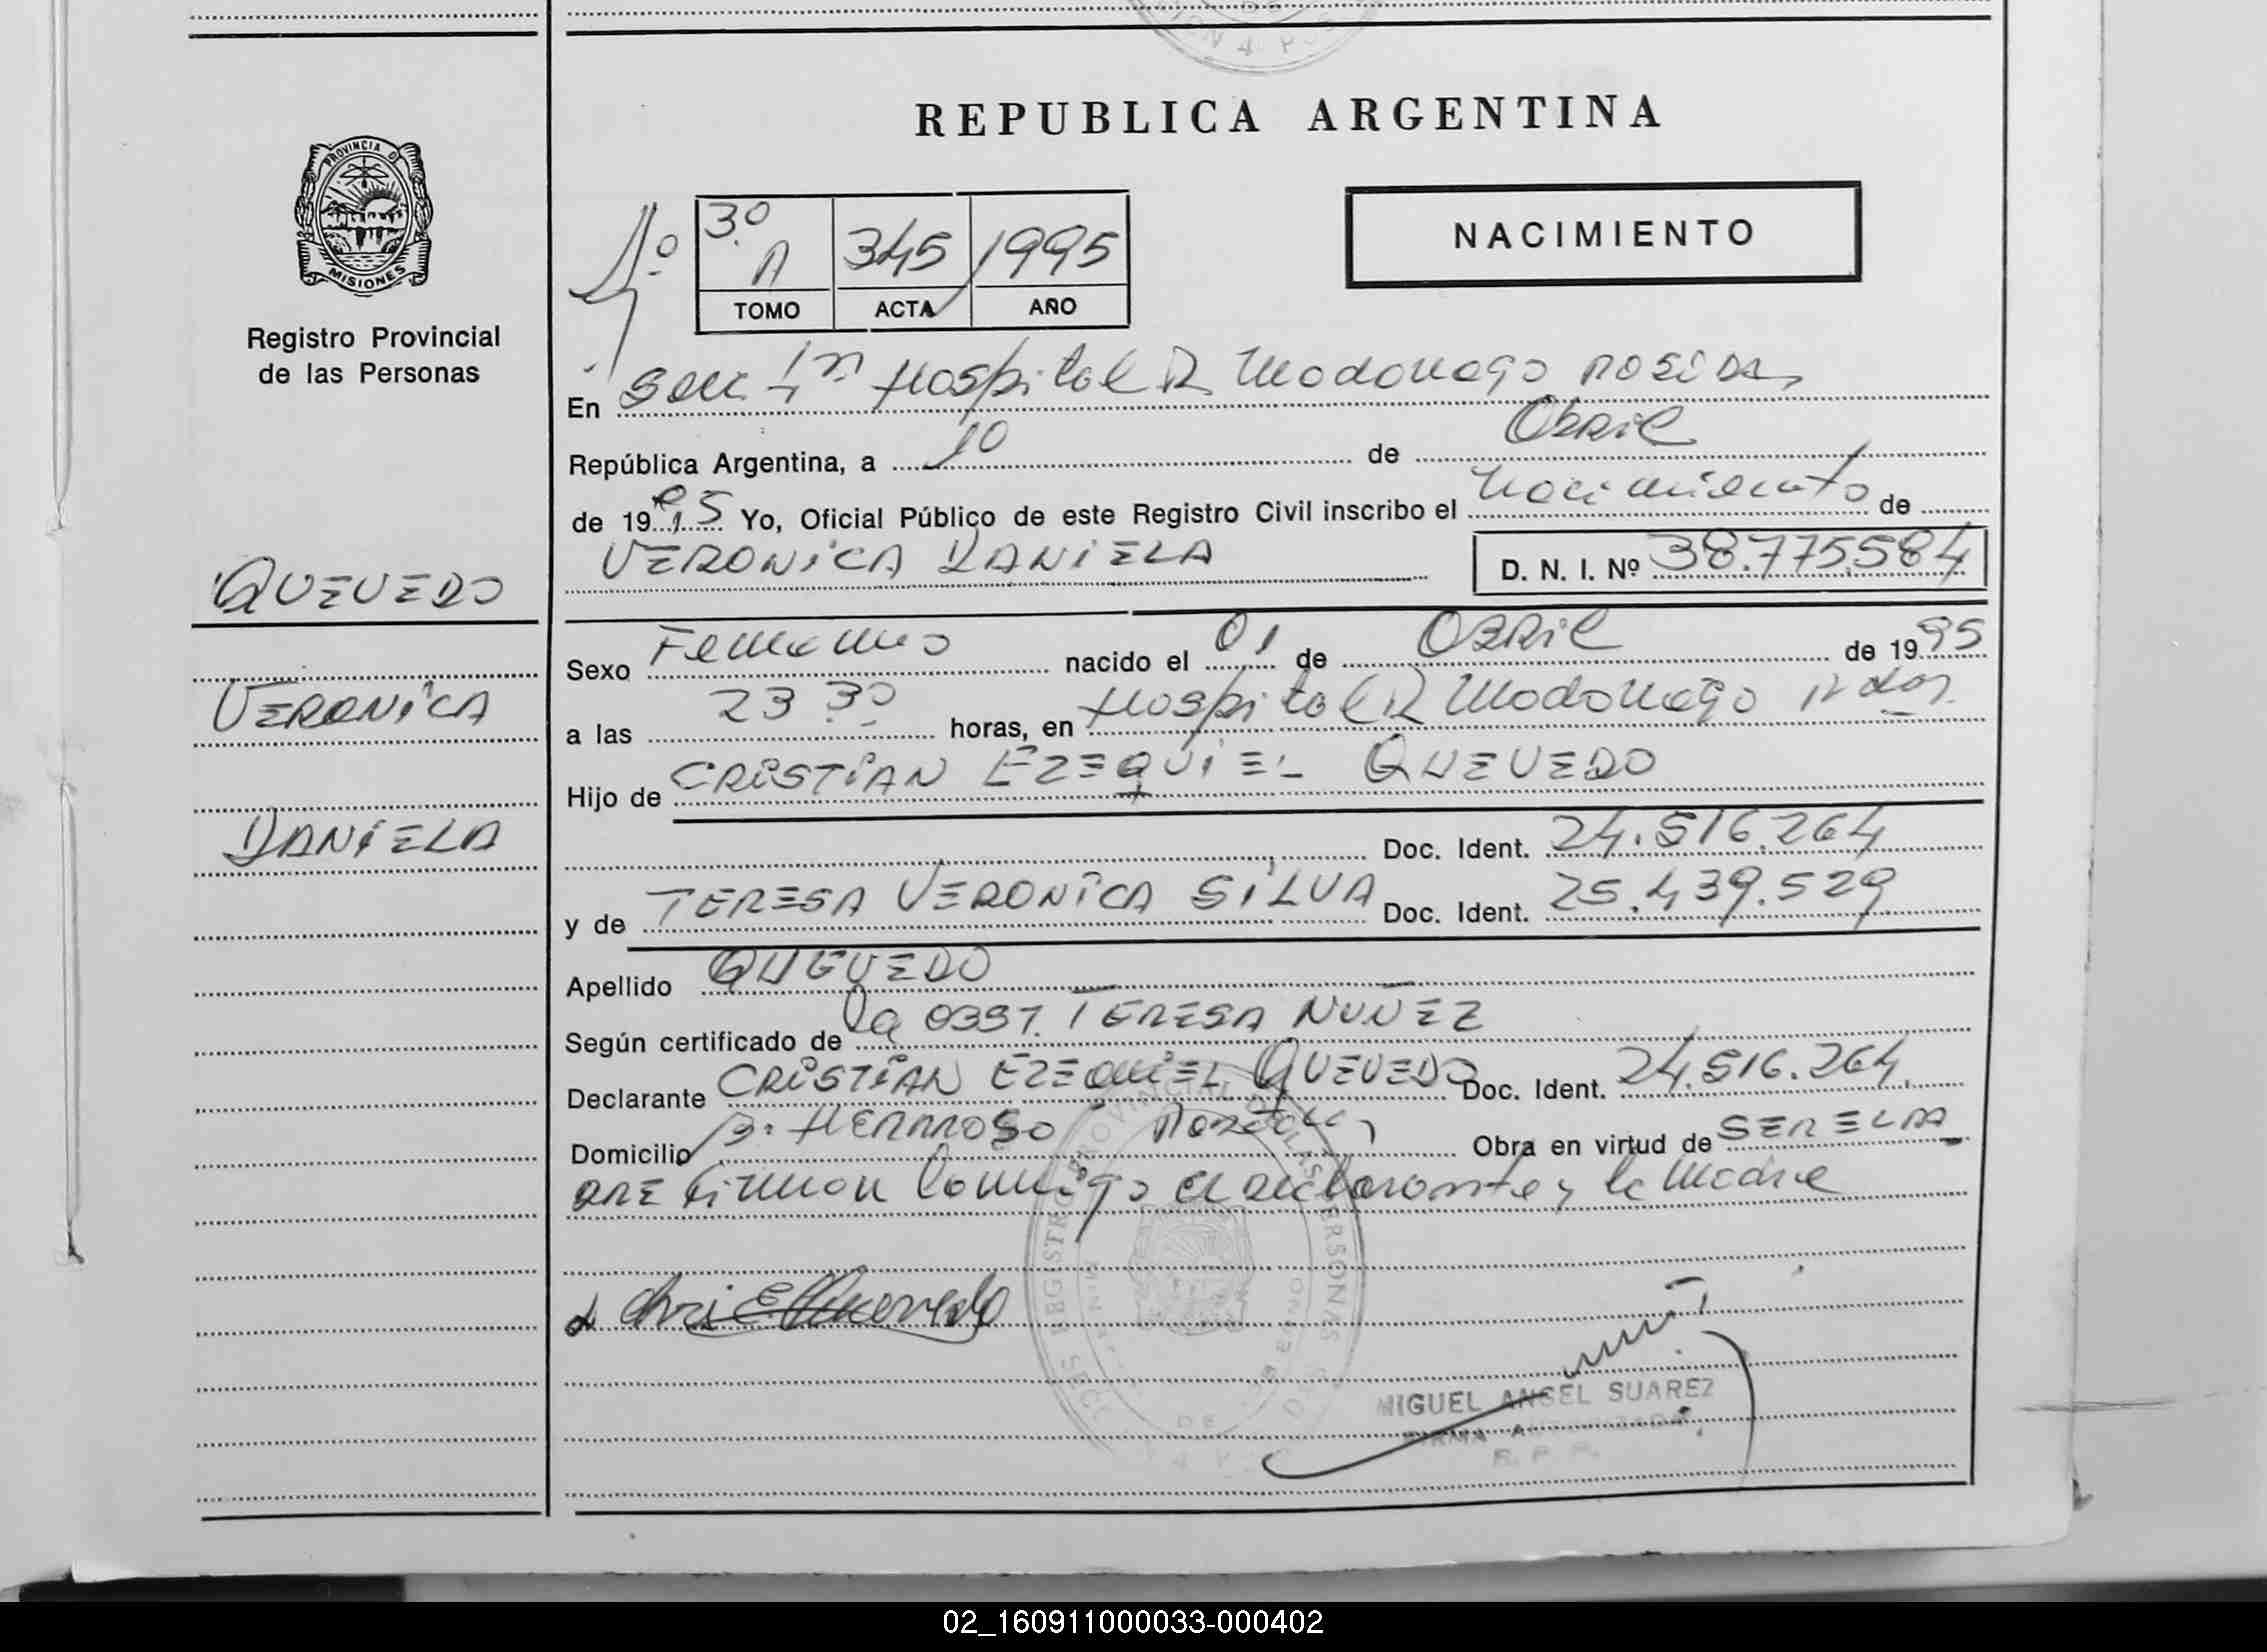 REPUBLICA ARGENTINA
PROVINCIA DE
MISIONES
Registro Provincial
de las Personas
3º A 345 1995
TOMO ACTA AÑO
NACIMIENTO
En Secc 1ra Hospital R Madariaga Posadas,
República Argentina, a 10 de Abril
de 1995 Yo, Oficial Público de este Registro Civil inscribo el Nacimiento de
VERONICA DANIELA D. N. I. Nº 38.775.584
QUEVEDO
VERONICA
DANIELA
Sexo Femenino nacido el 01 de Abril de 1995
a las 23 30 horas, en Hospital R Madariaga
Hijo de CRISTIAN EZEQUIEL QUEVEDO
Doc. Ident. 24.516.264
y de TERESA VERONICA SILVA Doc. Ident. 25.439.529
Apellido QUEVEDO
Según certificado de la Obst. TERESA NUÑEZ
Declarante CRISTIAN EZEQUIEL QUEVEDO Doc. Ident. 24.516.264
Domicilio Bº HERMOSO Obra en virtud de SER EL PA
DRE Firman Conmigo el declarante y la Madre
MIGUEL ANGEL SUAREZ
FIRMA AUTORIZADA
R. P. P.
02_160911000033-000402